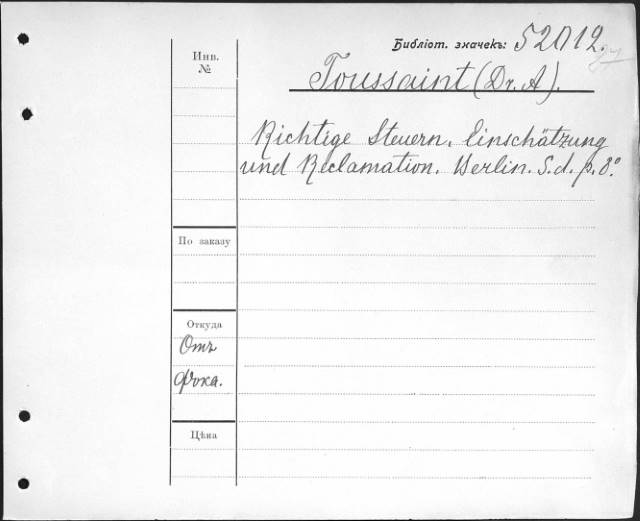 Библіот. значекъ: 52012.
Инв.
№
Toussaint (Dr. A).
Richtige Steuern. Einschätzung
und Reclamation. Berlin. S.d. p. 8°.
По заказу
Откуда
Отъ
Фока.
Цѣна